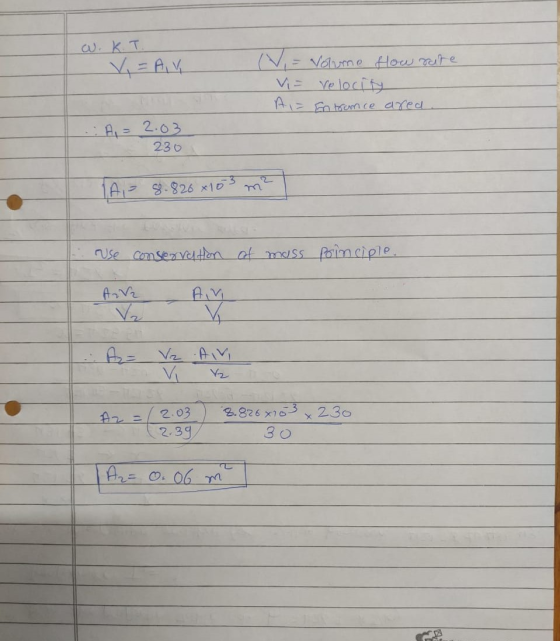 W. K. T
V₁ = A₁V₁ (V₁ = Volume flow rate
V₁ = Velocity
A₁ = Entrance area.
∴ A₁ = 2.03 / 230
A₁ = 8.826 × 10⁻³ m²
∴ Use conservation of mass Principle.
A₂V₂ / V₂ = A₁V₁ / V₁
∴ A₂ = V₂ / V₁ · A₁V₁ / V₂
A₂ = (2.03 / 2.39) 8.826 × 10⁻³ × 230 / 30
A₂ = 0.06 m²